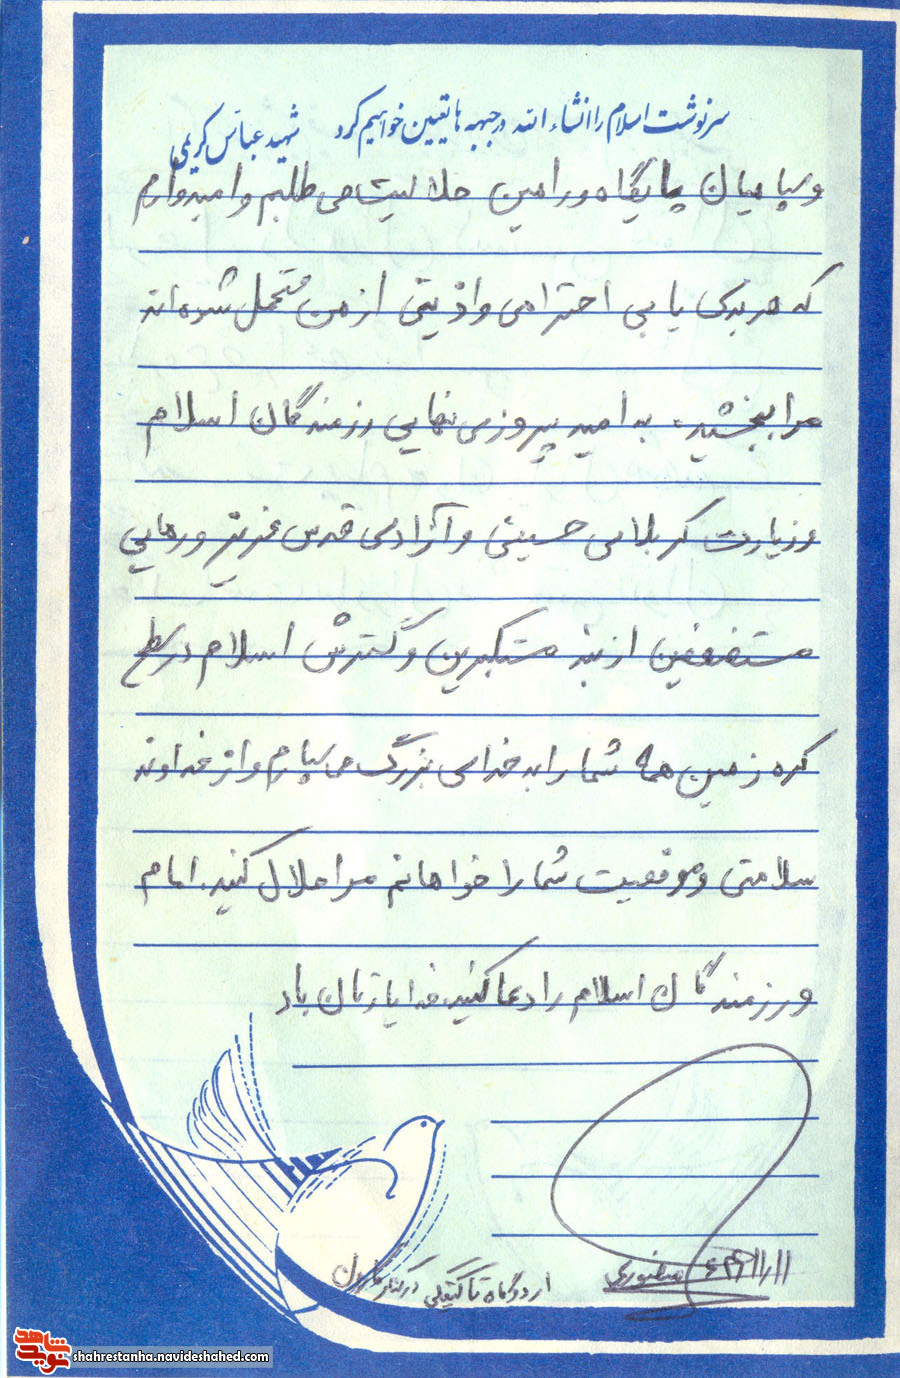 سرنوشت اسلام را انشاء الله در جبهه ها تعیین خواهیم کرد شهید عباس کریمی
و سپاهیان پایگاه ورامین حلالیت می طلبم و امیدوارم
که هر بدی یا بی احترامی و اذیتی از من متحمل شده اند
مرا ببخشید. به امید پیروزی نهایی رزمندگان اسلام
و زیارت کربلای حسینی و آزادی قدس عزیز و رهایی
مستضعفین از بند مستکبرین و گسترش اسلام در سطح
کره زمین همه شما را به خدای بزرگ می سپارم و از خداوند
سلامتی و موفقیت شما را خواهانم مرا حلال کنید. امام
و رزمندگان اسلام را دعا کنید. خدا یارتان باد
منصوری
اردوگاه تاکتیکی در کنار کارون
نوید شاهد
shahrestanha.navideshahed.com